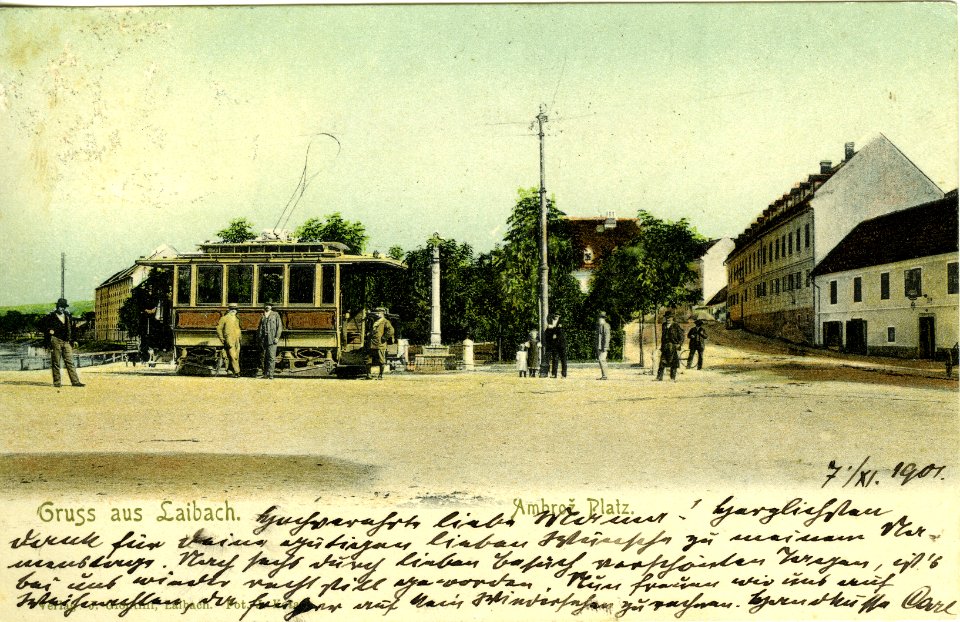 7/XI. 1901.
Gruss aus Laibach.
Ambrož Platz.
Hochverehrte liebe Mama! Herzlichsten
Dank für Deine gütigen lieben Wünsche zu meinem Na-
menstage. Nach sechs durch lieben Besuch verschönten Tagen, ist's
bei uns wieder recht still geworden. Nun freuen wir uns auf
Weihnachten da auf ein Wiedersehen zu rechnen. Handküsse Carl
Verlag Laibach.